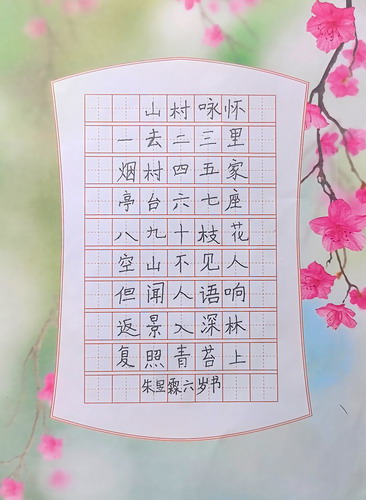 山村咏怀
一去二三里
烟村四五家
亭台六七座
八九十枝花
空山不见人
但闻人语响
返景入深林
复照青苔上
朱昱霖六岁书